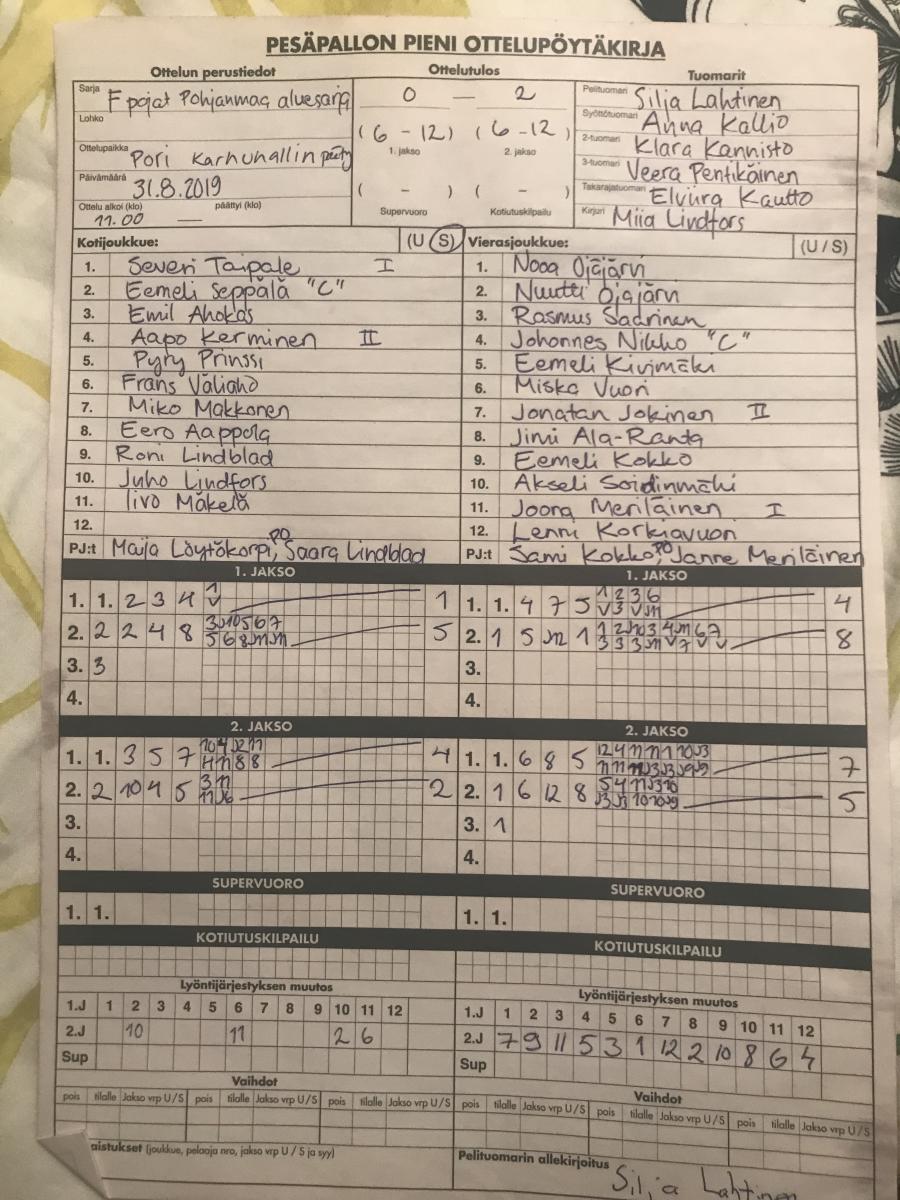 PESÄPALLON PIENI OTTELUPÖYTÄKIRJA
Ottelun perustiedot
Ottelutulos
Tuomarit
Sarja F pojat Pohjanmaa aluesarja
Lohko
Ottelupaikka Pori Karhuhallin pääty
Päivämäärä 31.8.2019
Ottelu alkoi (klo) päättyi (klo)
11.00 —
0 — 2
(6 - 12) (6 - 12)
1. jakso 2. jakso
( - ) ( - )
Supervuoro Kotiutuskilpailu
Pelituomari Silja Lahtinen
Syöttötuomari Anna Kallio
2-tuomari Klara Kannisto
3-tuomari Veera Pentikäinen
Takarajatuomari Elviira Kautto
Kirjuri Miia Lindfors
Kotijoukkue: (U S)
1. Severi Taipale I
2. Eemeli Seppälä "C"
3. Emil Ahokas
4. Aapo Kerminen II
5. Pyry Prinssi
6. Frans Väliaho
7. Miko Makkonen
8. Eero Aappola
9. Roni Lindblad
10. Juho Lindfors
11. Iivo Mäkelä
12.
PJ:t Maija Löytökorpi, PO Saara Lindblad
Vierasjoukkue: (U / S)
1. Nooa Ojajärvi
2. Nuutti Ojajärvi
3. Rasmus Saarinen
4. Johannes Nikko "C"
5. Eemeli Kivimäki
6. Miska Vuori
7. Jonatan Jokinen II
8. Jimi Ala-Ranta
9. Eemeli Kokko
10. Akseli Soidinmäki
11. Joora Meriläinen I
12. Lenni Korkiavuori
PJ:t Sami Kokko PO, Janne Meriläinen
1. JAKSO
1. 1. 2 3 4 1
2. 2 2 4 8 5
3. 3
4.
1. JAKSO
1. 1. 4 7 5 4
2. 1 5 1 8
3.
4.
2. JAKSO
1. 1. 3 5 7 4
2. 2 10 4 5 2
3.
4.
2. JAKSO
1. 1. 6 8 5 7
2. 1 6 12 8 5
3. 1
4.
SUPERVUORO
1. 1.
SUPERVUORO
1. 1.
KOTIUTUSKILPAILU
KOTIUTUSKILPAILU
Lyöntijärjestyksen muutos
1.J 1 2 3 4 5 6 7 8 9 10 11 12
2.J 10 11 2 6
Sup
Lyöntijärjestyksen muutos
1.J 1 2 3 4 5 6 7 8 9 10 11 12
2.J 7 9 11 5 3 1 12 2 10 8 6 4
Sup
Vaihdot
pois tilalle Jakso vrp U/S pois tilalle Jakso vrp U/S pois tilalle Jakso vrp U/S
Vaihdot
pois tilalle Jakso vrp U/S pois tilalle Jakso vrp U/S pois tilalle Jakso vrp U/S
aistukset (joukkue, pelaaja nro, jakso vrp U / S ja syy)
Pelituomarin allekirjoitus
Silja Lahtinen